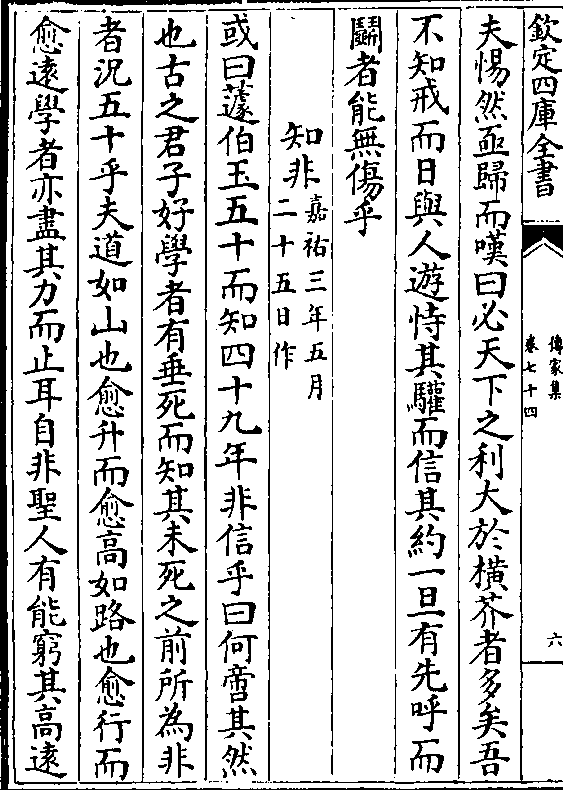 欽定四庫全書
傳家集
卷七十四
六
夫惕然亟歸而嘆曰必天下之利大於橫芥者多矣吾
不知戒而日與人遊恃其驩而信其約一旦有先呼而
鬬者能無傷乎
知非嘉祐三年五月
二十五日作
或曰蘧伯玉五十而知四十九年非信乎曰何啻其然
也古之君子好學者有垂死而知其未死之前所為非
者況五十乎夫道如山也愈升而愈高如路也愈行而
愈遠學者亦盡其力而止耳自非聖人有能窮其高遠